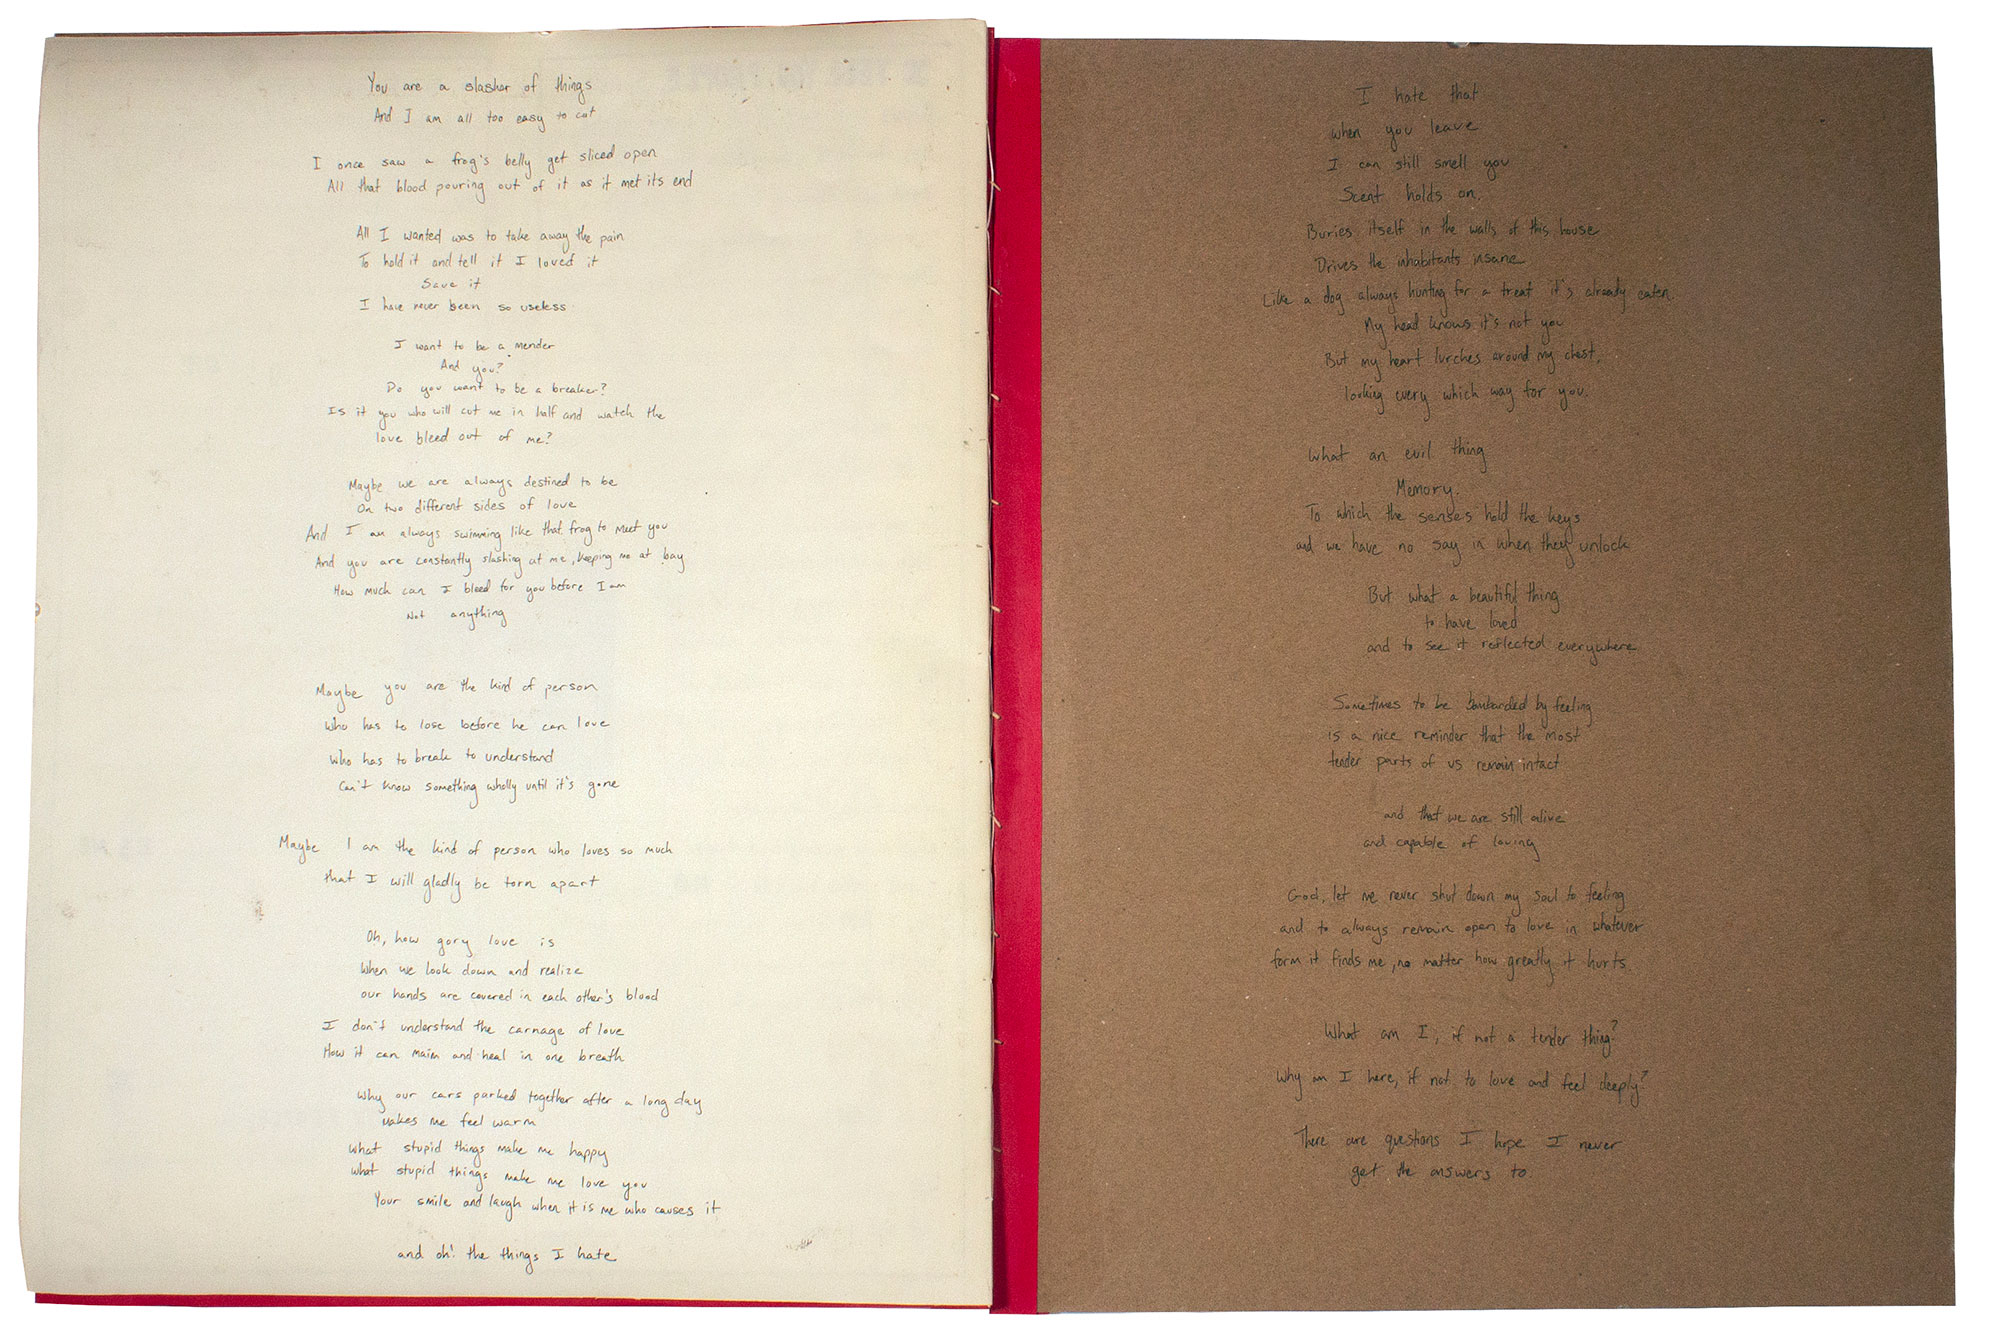 You are a slasher of things
And I am all too easy to cut
I once saw a frog's belly get sliced open
All that blood pouring out of it as it met its end
All I wanted was to take away the pain
To hold it and tell it I loved it
Save it
I have never been so useless
I want to be a mender
And you?
Do you want to be a breaker?
Is it you who will cut me in half and watch the
love bleed out of me?
Maybe we are always destined to be
On two different sides of love
And I am always swimming like that frog to meet you
And you are constantly slashing at me, keeping me at bay
How much can I bleed for you before I am
Not anything
Maybe you are the kind of person
Who has to lose before he can love
Who has to break to understand
Can't know something wholly until it's gone
Maybe I am the kind of person who loves so much
that I will gladly be torn apart
Oh, how gory love is
When we look down and realize
our hands are covered in each other's blood
I don't understand the carnage of love
How it can maim and heal in one breath
Why our cars parked together after a long day
Makes me feel warm
What stupid things make me happy
What stupid things make me love you
Your smile and laugh when it is me who causes it
and oh! the things I hate
I hate that
when you leave
I can still smell you
Scent holds on.
Buries itself in the walls of this house
Drives the inhabitants insane
Like a dog always hunting for a treat it's already eaten.
My head knows it's not you
But my heart lurches around my chest,
looking every which way for you.
What an evil thing
Memory.
To which the senses hold the keys
and we have no say in when they unlock
But what a beautiful thing
to have loved
and to see it reflected everywhere
Sometimes to be bombarded by feeling
is a nice reminder that the most
tender parts of us remain intact
and that we are still alive
and capable of loving
God, let me never shut down my soul to feeling
and to always remain open to love in whatever
form it finds me, no matter how greatly it hurts.
What am I, if not a tender thing?
Why am I here, if not to love and feel deeply?
There are questions I hope I never
get the answers to.